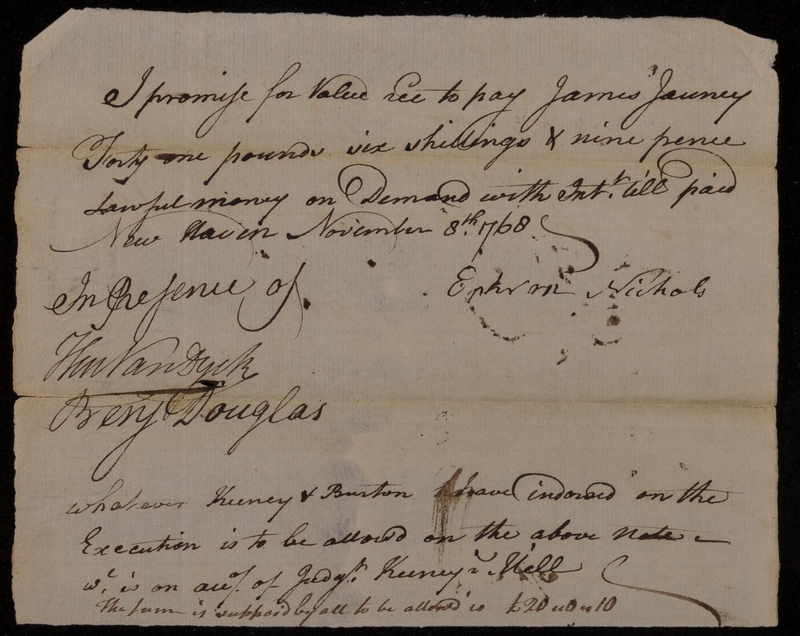 I promise for Value Rec to pay James Jauncy
Forty one pounds six shillings & nine pence
Lawful money on Demand with Intt. till paid
New Haven November 8th. 1768
In Presence of
Ephrm Nichols
Hen Van Dyck
Benj Douglas
whatever Keeney & Burton have indorsed on the
Execution is to be allowd on the above note
wc. is on acct. of Judgt. Keeney
The sum is supposd by all to be allowd is £20 10